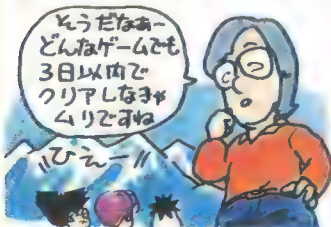 そうだなあー
どんなゲームでも
3日以内で
クリアしなきゃ
ムリですね
ひえー